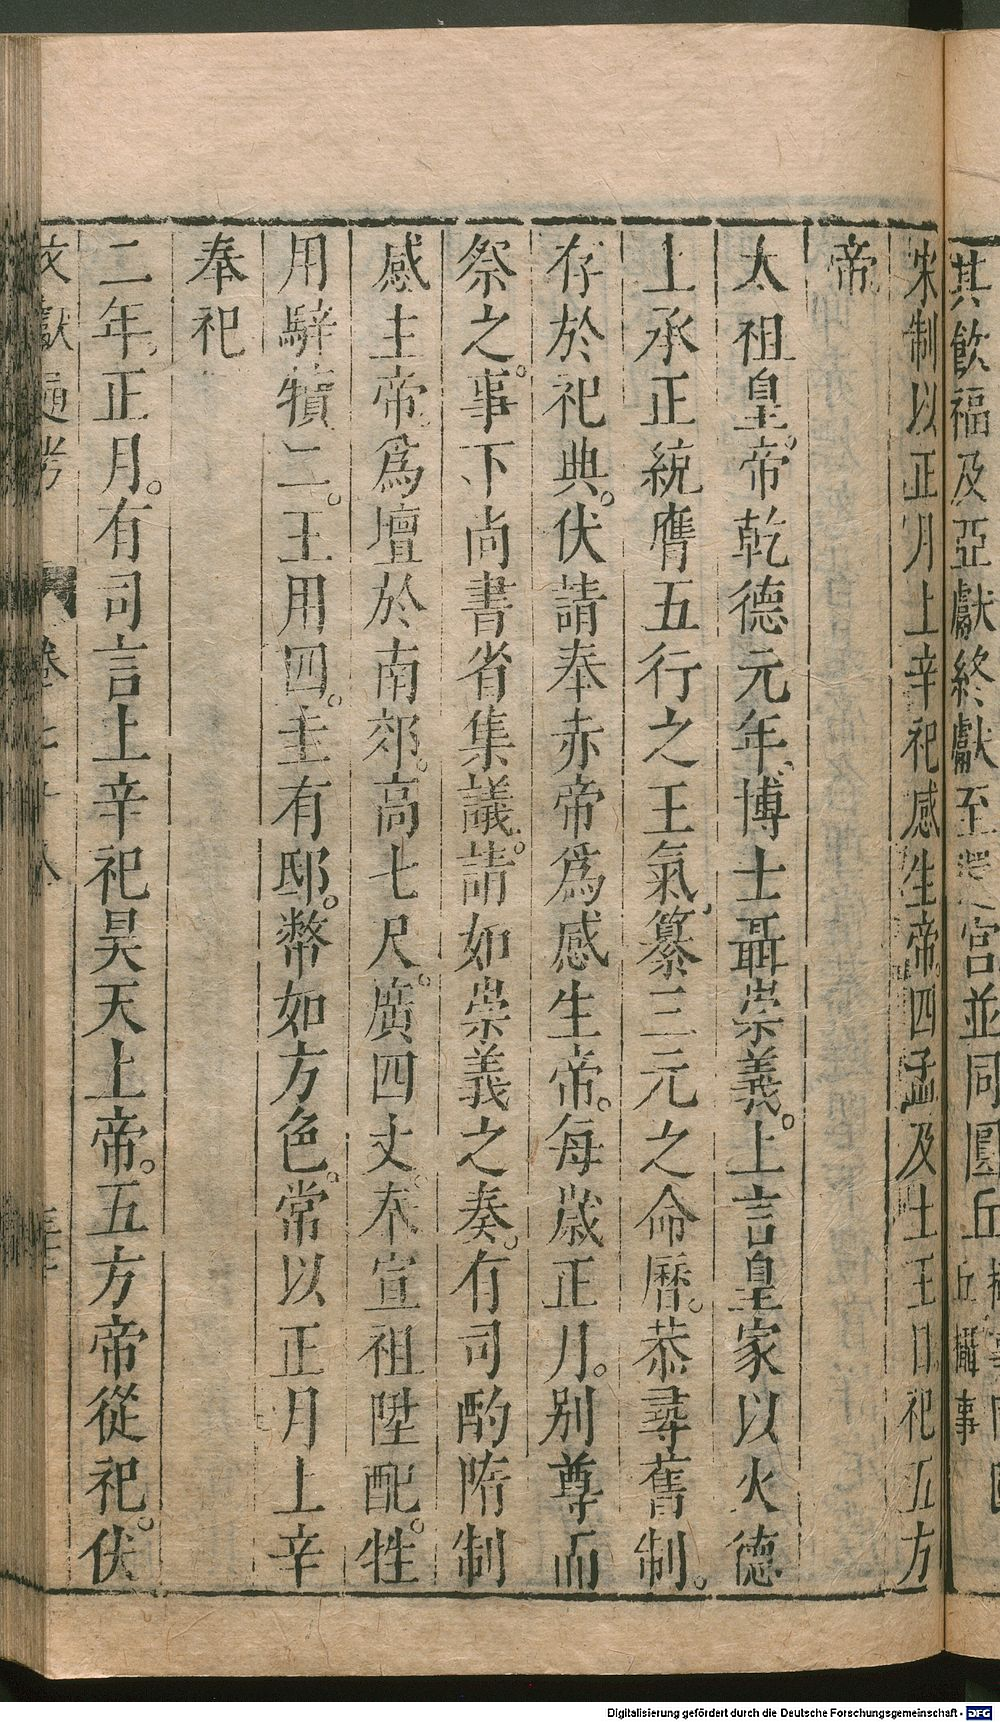 其飲福及亞獻終獻至還宮並同圓丘
丘攝事
宋制以正月上辛祀感生帝四孟及土王日祀五方
帝
太祖皇帝乾德元年博士聶崇義上言皇家以火德
上承正統膺五行之王氣纂三元之命曆。恭尋舊制。
存於祀典。伏請奉赤帝爲感生帝。每歲正月。别尊而
祭之。事下尚書省集議。請如崇義之奏。有司酌隋制
感生帝爲壇於南郊。高七尺。廣四丈。奉宣祖陞配。牲
用騂犢二。玉用四。圭有邸。幣如方色。常以正月上辛
奉祀
二年。正月。有司言上辛祀昊天上帝。五方帝從祀。伏
文獻通考 卷七十八
Digitalisierung gefördert durch die Deutsche Forschungsgemeinschaft - DFG